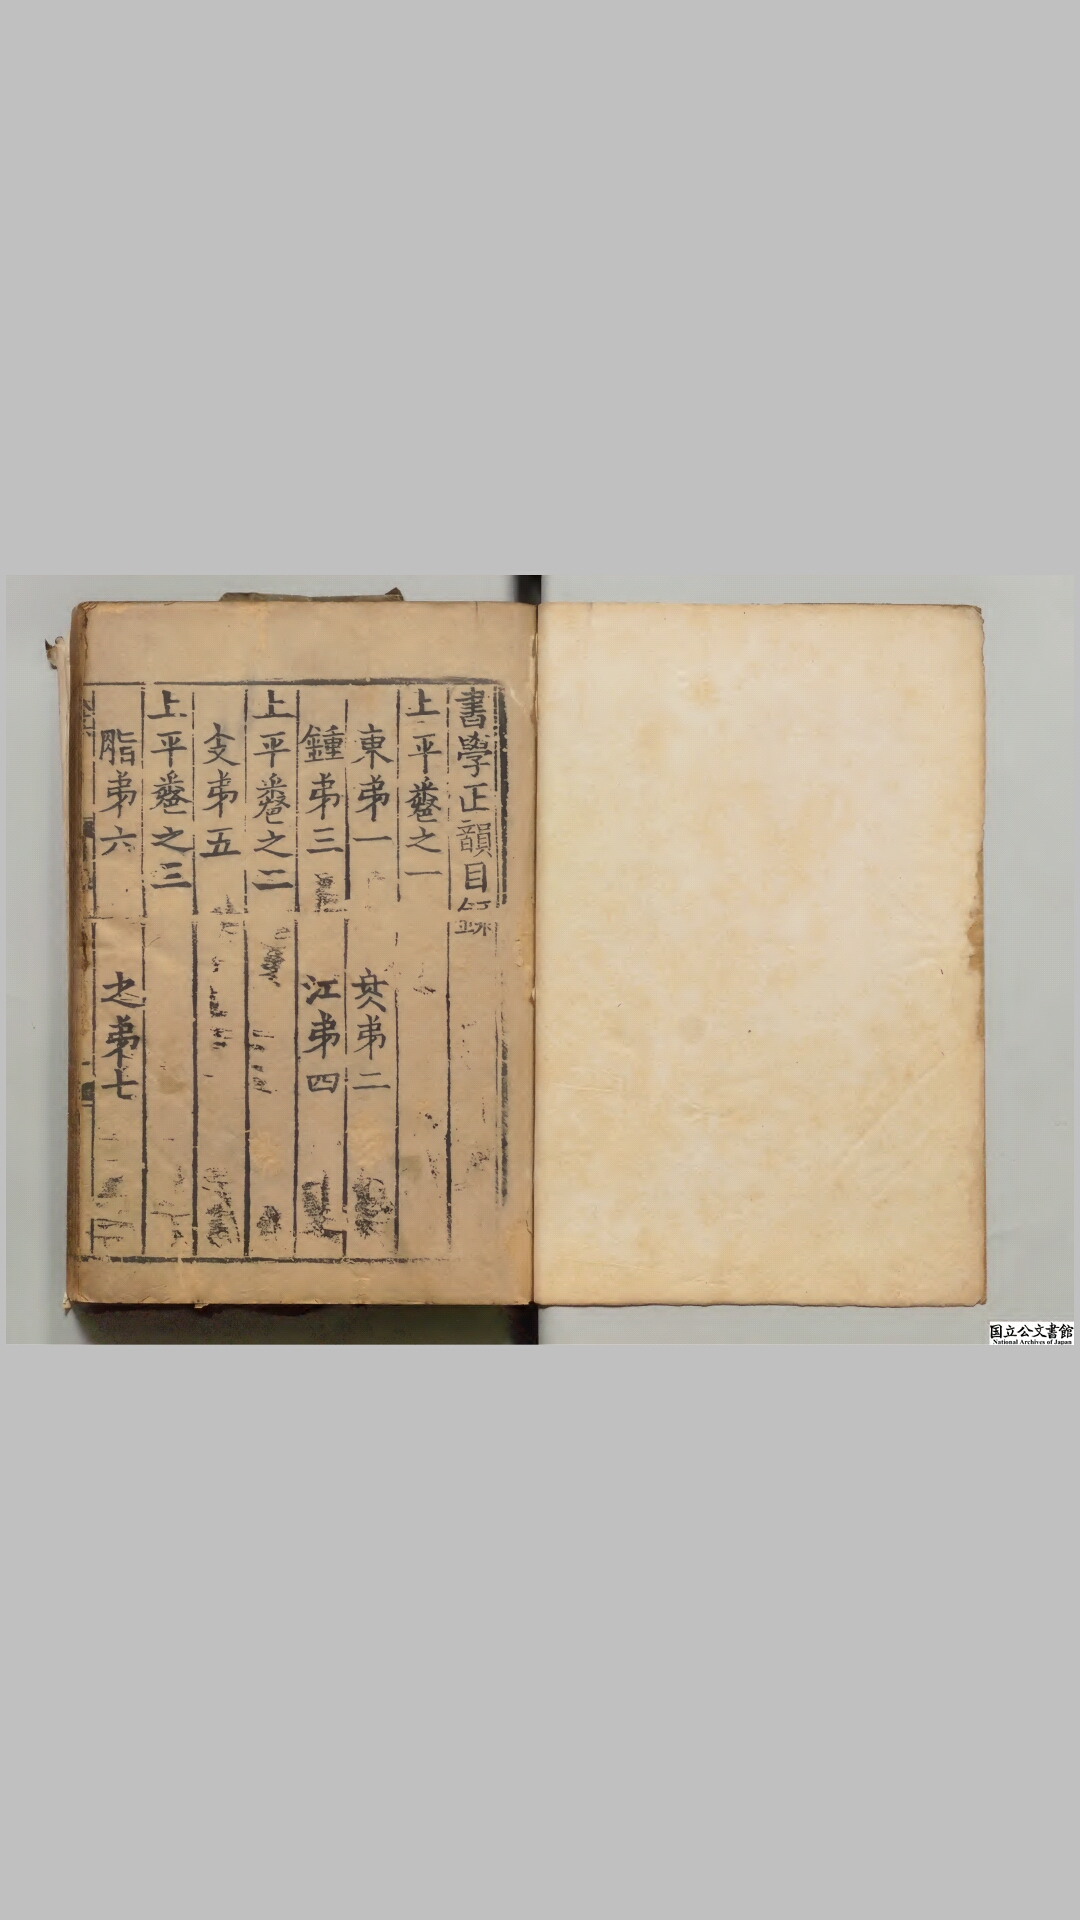 書學正韻目録
上平卷之一
東弟一 冬弟二
鍾弟三 江弟四
上平卷之二
支弟五
上平卷之三
脂弟六 之弟七
国立公文書館
National Archives of Japan